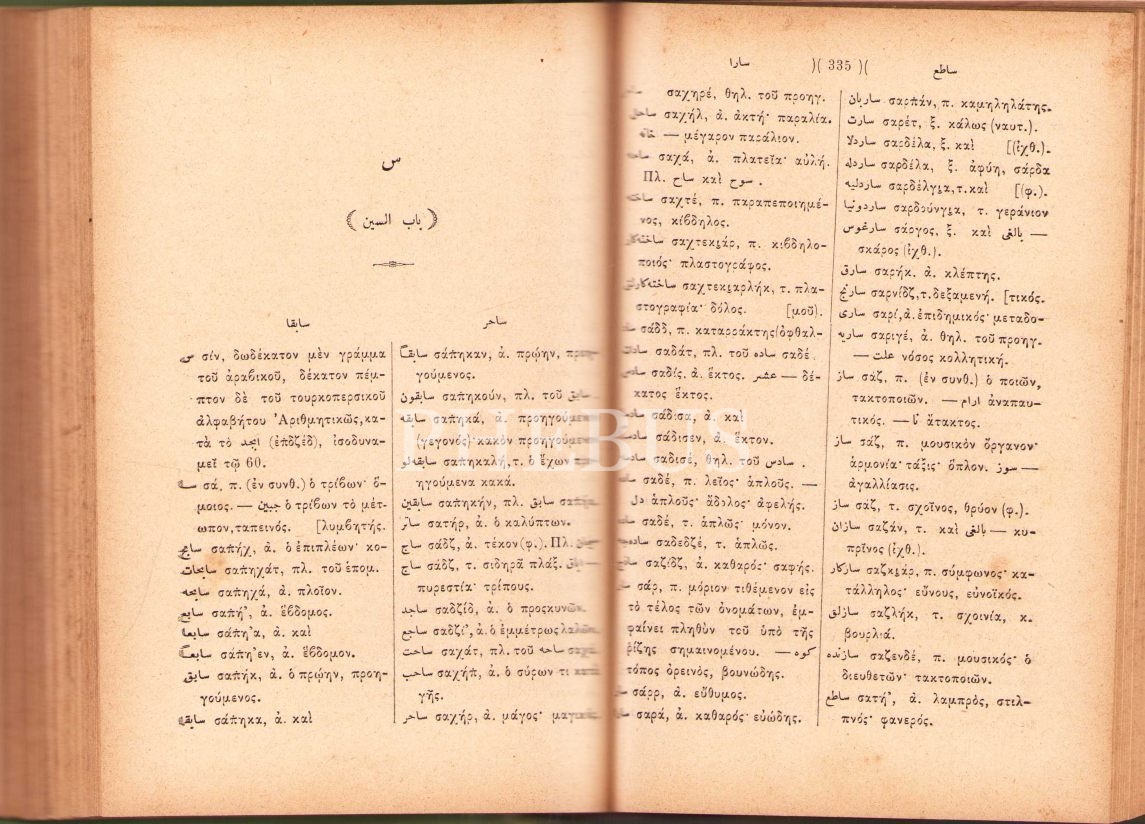 س
(باب السين)
سابقا ساحر
س σίν, δωδέκατον μὲν γράμμα
τοῦ ἀραβικοῦ, δέκατον πέμ-
πτον δὲ τοῦ τουρκοπερσικοῦ
ἀλφαβήτου Ἀριθμητικῶς, κα-
τὰ τὸ ابجد (ἐπδζέδ), ἰσοδυνα-
μεῖ τῷ 60.
سا σά, π. (ἐν συνθ.) ὁ τρίβων· ὅ-
μοιος. — جبين ὁ τρίβων τὸ μέτ-
ωπον, ταπεινός. [λυμβητής.
سابح σαπήχ, ἀ. ὁ ἐπιπλέων· κο-
سابحات σαπηχάτ, πλ. τοῦ ἑπομ.
سابحه σαπηχά, ἀ. πλοῖον.
سابع σαπή', ἀ. ἕβδομος.
سابعا σάπη'α, ἀ. καὶ
سابعاً σάπη'εν, ἀ. ἕβδομον.
سابق σαπήκ, ἀ. ὁ πρῴην, προη-
γούμενος.
سابقا σάπηκα, ἀ. καὶ
سابقاً σάπηκαν, ἀ. πρῴην,
γούμενος.
سابقون σαπηκούν, πλ. τοῦ سابق.
سابقه σαπηκά, ἀ. προηγούμεν
(γεγονός)· κακὸν προηγούμεν
سابقه لو σαπηκαλή, τ. ὁ ἔχων
ηγούμενα κακά.
سابقين σαπηκήν, πλ. سابق
ساتر σατήρ, ἀ. ὁ καλύπτων.
ساج σάδζ, ἀ. τέκον (φ.). Πλ.
ساج σάδζ, τ. σιδηρᾶ πλάξ.
πυρεστία· τρίπους.
ساجد σαδζίδ, ἀ. ὁ προσκυνῶν.
ساجع σαδζί', ἀ. ὁ ἐμμέτρως λαλῶν.
ساحت σαχάτ, πλ. τοῦ ساحه
ساحب σαχήπ, ἀ. ὁ σύρων τι κατὰ
γῆς.
ساحر σαχήρ, ἀ. μάγος· μαγικός.
سارا )( 335 )( ساطع
σαχηρέ, θηλ. τοῦ προηγ.
σαχήλ, ἀ. ἀκτή· παραλία.
خانه — μέγαρον παράλιον.
ساحه σαχά, ἀ. πλατεῖα· αὐλή.
Πλ. ساح καὶ سوح.
ساخته σαχτέ, π. παραπεποιημέ-
νος, κίβδηλος.
ساخته كار σαχτεκιάρ, π. κιβδηλο-
ποιός· πλαστογράφος.
ساخته كارلق σαχτεκιαρλήκ, τ. πλα-
στογραφία· δόλος. [μοῦ).
σάδδ, π. καταρράκτης (ὀφθαλ-
سادات σαδάτ, πλ. τοῦ ساده σαδέ.
سادس σαδίς, ἀ. ἕκτος. عشر — δέ-
κατος ἕκτος.
σάδισα, ἀ. καὶ
σάδισεν, ἀ. ἕκτον.
σαδισέ, θηλ. τοῦ سادس.
ساده σαδέ, π. λεῖος· ἁπλοῦς. —
دل ἁπλοῦς· ἄδολος· ἀφελής.
ساده σαδέ, τ. ἁπλῶς· μόνον.
ساده جه σαδεδζέ, τ. ἁπλῶς.
σαζίδζ, ἀ. καθαρός· σαφής.
σάρ, π. μόριον τιθέμενον εἰς
τὸ τέλος τῶν ὀνομάτων, ἐμ-
φαίνει πληθὺν τοῦ ὑπὸ τῆς
ῥίζης σημαινομένου. — كوه
τόπος ὀρεινός, βουνώδης.
σάρρ, ἀ. εὔθυμος.
σαρά, ἀ. καθαρός· εὐώδης.
ساربان σαρπάν, π. καμηληλάτης.
سارت σαρέτ, ξ. κάλως (ναυτ.).
ساردلا σαρδέλα, ξ. καὶ [(ἰχθ.).
ساردله σαρδέλα, ξ. ἀφύη, σάρδα
ساردليه σαρδέλγια, τ. καὶ [(φ.).
ساردونيا σαρδούνγια, τ. γεράνιον
سارغوس σάργος, ξ. καὶ بالغى —
σκάρος (ἰχθ.).
سارق σαρήκ. ἀ. κλέπτης.
سارنج σαρνίδζ, τ. δεξαμενή. [τικός.
سارى σαρί, ἀ. ἐπιδημικός· μεταδο-
ساريه σαριγέ, ἀ. θηλ. τοῦ προηγ.
— علت νόσος κολλητική.
ساز σάζ, π. (ἐν συνθ.) ὁ ποιῶν,
τακτοποιῶν. — آرام ἀναπαυ-
τικός. نا — ἄτακτος.
ساز σάζ, π. μουσικὸν ὄργανον·
ἁρμονία· τάξις· ὅπλον. سوز —
ἀγαλλίασις.
ساز σάζ, τ. σχοῖνος, θρύον (φ.).
سازان σαζάν, τ. καὶ بالغى — κυ-
πρῖνος (ἰχθ.).
سازكار σαζκιάρ, π. σύμφωνος· κα-
τάλληλος· εὔνους, εὐνοϊκός.
سازلق σαζλήκ, τ. σχοινία, κ.
βουρλιά.
سازنده σαζενδέ, π. μουσικός· ὁ
διευθετῶν· τακτοποιῶν.
ساطع σατή', ἀ. λαμπρός, στιλ-
πνός· φανερός.